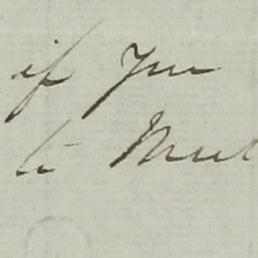 if you
to